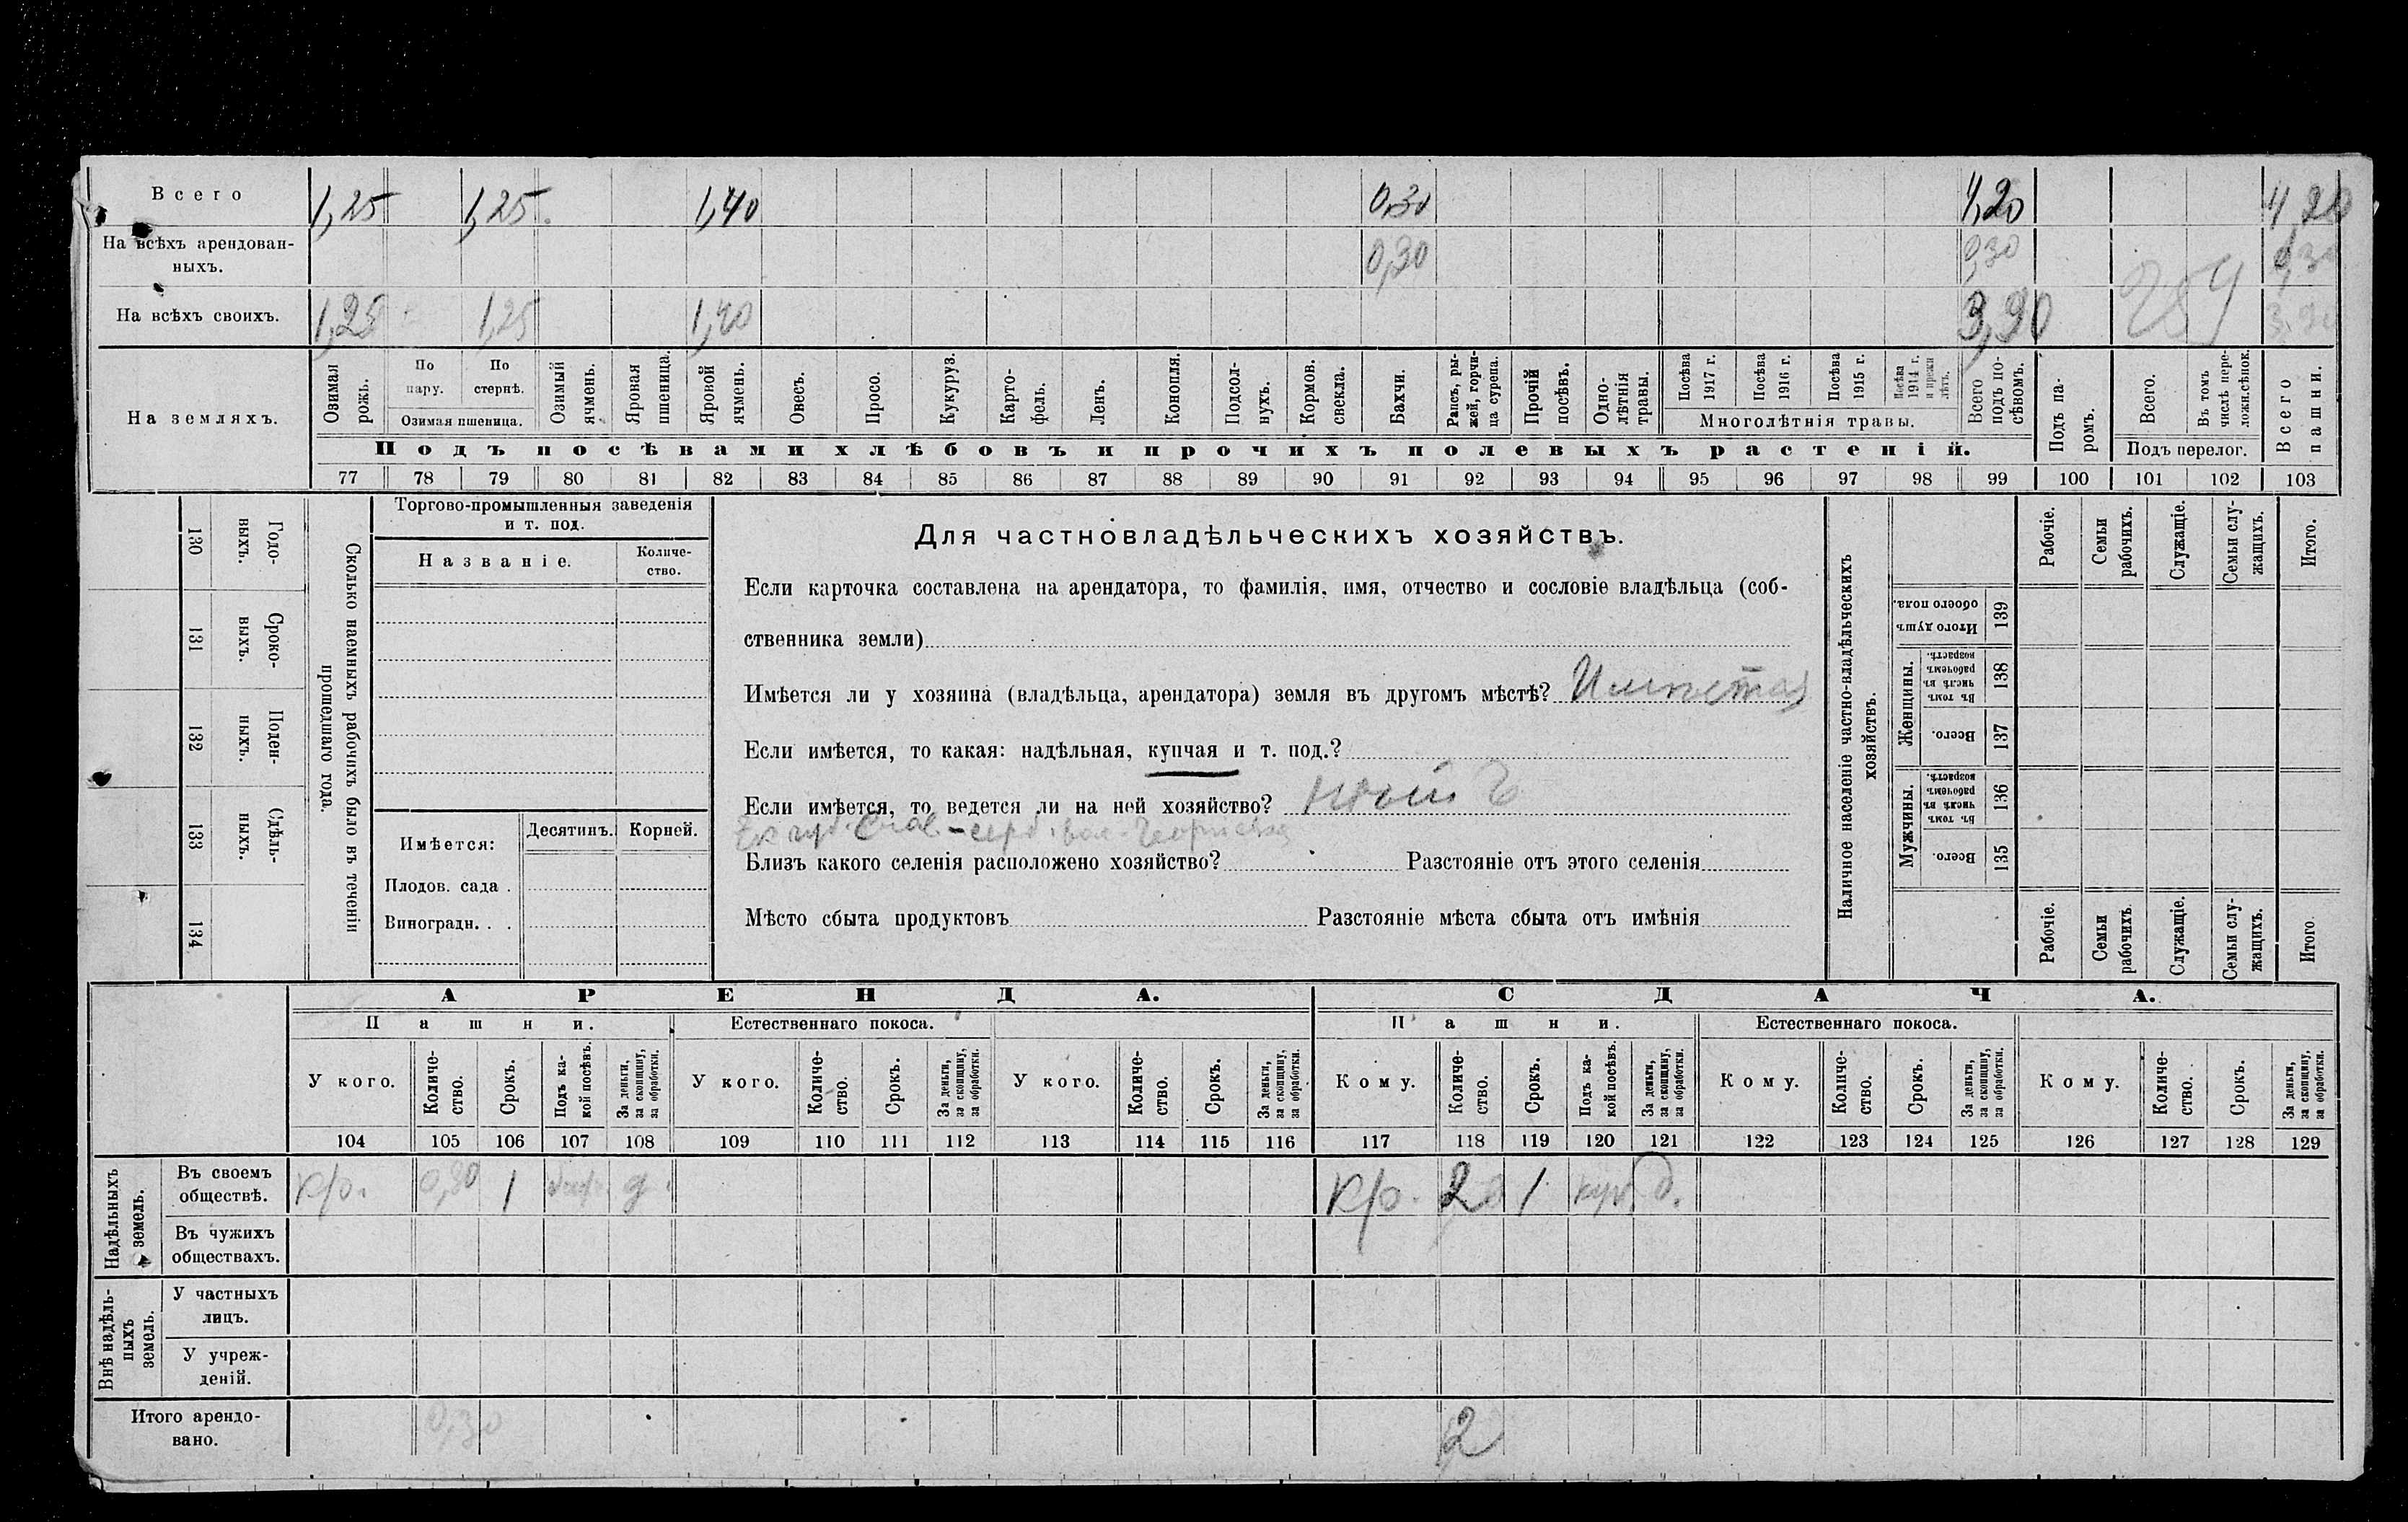 Всего 1,25 1,25 1,40 0,30 4,20 4,20
На всѣхъ арендован-
ныхъ. 0,30 0,30 0,30
На всѣхъ своихъ. 1,25 1,25 1,40 3,90 3,90
На земляхъ.
Озимая рожь.
По пару.
По стернѣ.
Озимая пшеница.
Озимый ячмень.
Яровая пшеница.
Яровой ячмень.
Овесъ.
Просо.
Кукуруз.
Карто-
фель.
Ленъ.
Конопля.
Подсол-
нухъ.
Кормов. свекла.
Бахчи.
Рапсъ, ры-
жей, горчи-
ца сурепа.
Прочій посѣвъ.
Одно-
лѣтнія травы.
Посѣва 1917 г.
Посѣва 1916 г.
Посѣва 1915 г.
Посѣва 1914 г. и прежн лѣтъ.
Многолѣтнія травы.
Всего подъ по-
сѣвомъ.
Подъ па-
ромъ.
Всего.
Въ томъ числѣ пере-
ложн.сѣнок.
Подъ перелог.
Всего пашни.
Подъ посѣвами хлѣбовъ и прочихъ полевыхъ растеній.
77 78 79 80 81 82 83 84 85 86 87 88 89 90 91 92 93 94 95 96 97 98 99 100 101 102 103
130 Годо-
выхъ.
131 Сроко-
выхъ.
132 Поден-
ныхъ.
133 Сдѣль-
ныхъ.
134
Сколько наемныхъ рабочихъ было въ теченіи
прошедшаго года.
Торгово-промышленныя заведенія
и т. под.
Названіе.
Количе-
ство.
Имѣется:
Десятинъ. Корней.
Плодов. сада .
Виноградн. . .
Для частновладѣльческихъ хозяйствъ.
Если карточка составлена на арендатора, то фамилія, имя, отчество и сословіе владѣльца (соб-
ственника земли)
Имѣется ли у хозяина (владѣльца, арендатора) земля въ другомъ мѣстѣ?
Если имѣется, то какая: надѣльная, купчая и т. под.?
Если имѣется, то ведется ли на ней хозяйство?
Близъ какого селенія расположено хозяйство? Разстояніе отъ этого селенія
Мѣсто сбыта продуктовъ Разстояніе мѣста сбыта отъ имѣнія
Наличное населеніе частно-владѣльческихъ
хозяйствъ.
Рабочіе.
Семьи рабочихъ.
Служащіе.
Семьи слу-
жащихъ.
Итого.
Итого душъ обоего пола. 139
Женщины.
Въ томъ числѣ въ рабочемъ возрастѣ. 138
Всего. 137
Мужчины.
Въ томъ числѣ въ рабочемъ возрастѣ. 136
Всего. 135
Рабочіе.
Семьи рабочихъ
Служащіе.
Семьи слу-
жащихъ.
Итого
АРЕНДА. СДАЧА.
Пашни. Естественнаго покоса. Пашни. Естественнаго покоса.
У кого.
Количе-
ство.
Срокъ.
Подъ ка-
кой посѣвъ.
За деньги, за скопщину, за обработки.
У кого.
Количе-
ство.
Срокъ.
За деньги, за скопщину, за обработки.
У кого.
Количе-
ство.
Срокъ.
За деньги, за скопщину, за обработки.
Кому.
Количе-
ство.
Срокъ.
Подъ ка-
кой посѣвъ.
За деньги, за скопщину, за обработки.
Кому.
Количе-
ство.
Срокъ.
За деньги, за скопщину, за обработки.
Кому.
Количе-
ство.
Срокъ.
За деньги, за скопщину, за обработки.
104 105 106 107 108 109 110 111 112 113 114 115 116 117 118 119 120 121 122 123 124 125 126 127 128 129
Надѣльныхъ земель.
Въ своемъ
обществѣ. кр. 0,30 1 д. кр. 2 1 д.
Въ чужихъ
обществахъ.
Внѣ надѣль-
ныхъ земель.
У частныхъ
лицъ.
У учреж-
деній.
Итого арендо-
вано. 0,30 2